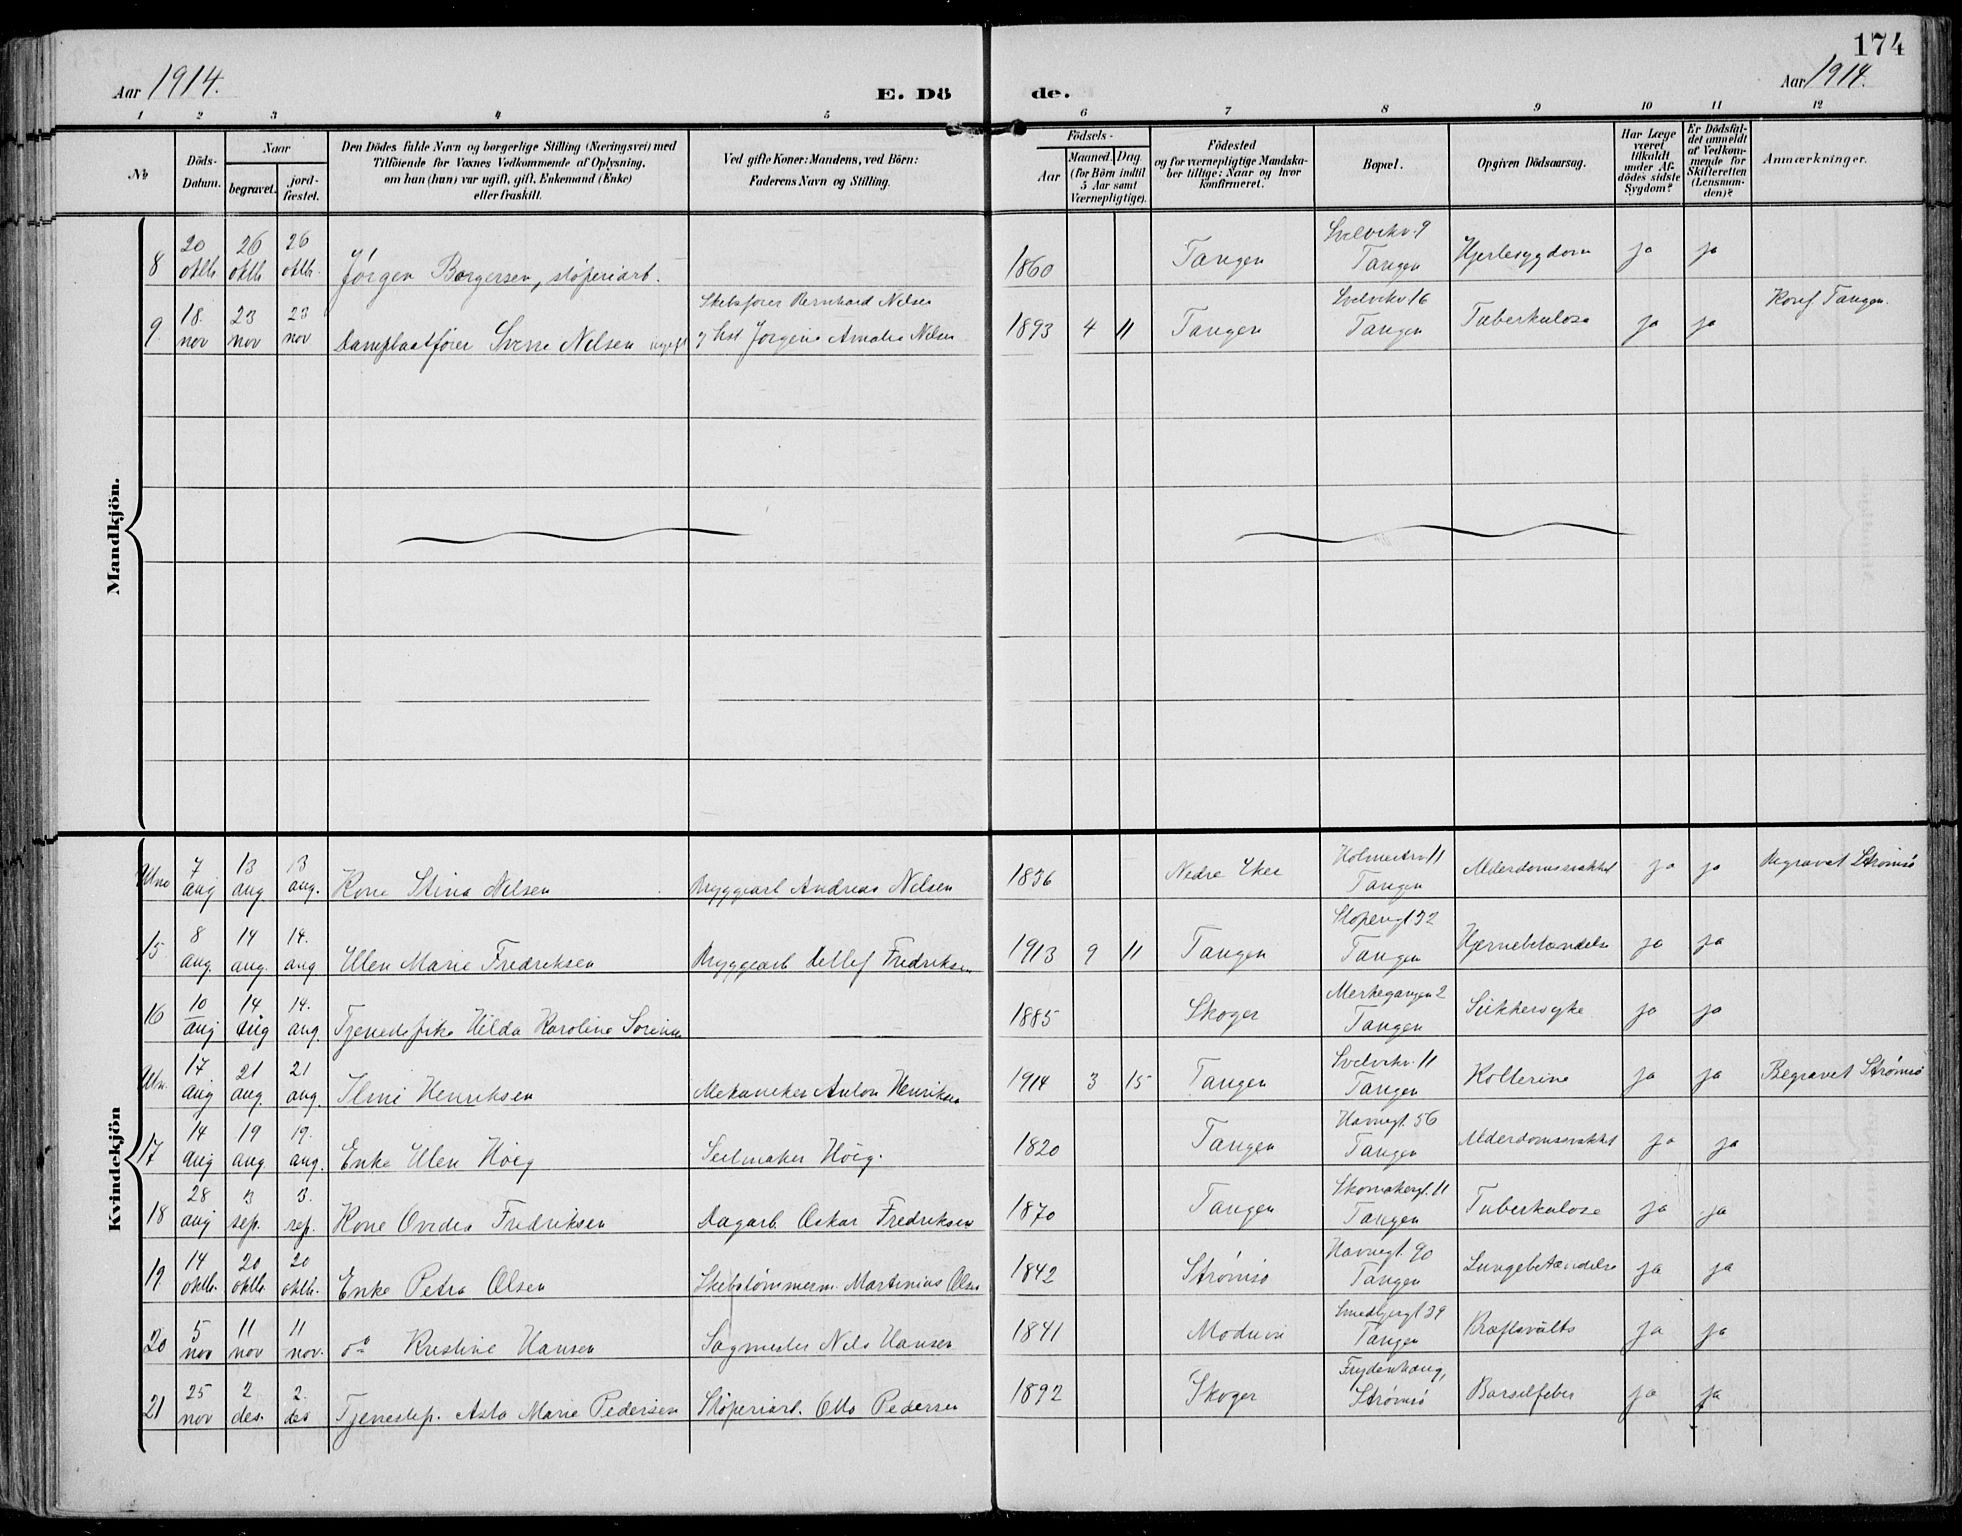 174
Aar 1914.
E. Dö
de.
Aar 1914.
1 2 3 4 5 6 7 8 9 10 11 12
№
Döds-
Datum.
Naar
begravet.
jord-
fæstet.
Den Dödes fulde Navn og borgerlige Stilling (Næringsvei) med
Tilföiende for Voxnes Vedkommende af Oplysning,
om han (hun) var ugift, gift, Enkemand (Enke)
eller fraskilt.
Ved gifte Koner: Mandens, ved Börn:
Faderens Navn og Stilling.
Födsels-
Aar
Maaned. Dag
(for Börn indtil
5 Aar samt
Værnepligtige).
Födested
og for værnepligtige Mandska-
ber tillige: Naar og hvor
konfirmeret.
Bopæl.
Opgiven Dödsaarsag.
Har Læge
været
tilkaldt
under Af-
dödes sidste
Sygdom?
Er Dödsfal-
det anmeldt
af Vedkom-
mende for
Skifteretten
(Lensman-
den)?
Anmærkninger.
Mandkjön.
20 26 26 Svelvikv. 9
8 oktb oktb oktb. Jørgen Borgersen, støperiarb. 1860 Tangen Tangen Hjertesygdom ja ja
18. 23 23 Skibsfører Bernhard Nilsen Svelvikv 16 Konf Tangen.
9. nov nov nov Dampbaatfører Sverre Nilsen ugift Jørgine Amalie Nilsen 1893 4 11 Tangen Tangen Tuberkulose ja ja
Kvindekjön
7 13 13 Holmestrv 11
Utno aug aug. aug. Kone Stina Nilsen Bryggearb Andreas Nilsen 1836 Nedre Eker Tangen Alderdomssvakhet ja ja Begravet Strømsø
8 14 14. Støperigt 32
15 aug. aug. aug Ellen Marie Fredriksen Bryggearb Detlef Fredriksen 1913 9 11 Tangen Tangen Hjernebetændelse ja ja
10 14. 14. Merkegangen 2
16 aug aug aug. Tjenestepike Hilda Karoline Sørensen 1885 Skoger Tangen Sukkersyke ja ja
17 21 21 Svelvikv. 11
Utn. aug aug. aug. Henriksen Mekaniker Anton Henriksen 1914 3 15 Tangen Tangen Kollerine ja ja Begravet Strømsø
14 19 19. Havnegt. 56
17 aug aug aug. Enke Ellen Høeg Seilmaker Høeg. 1820 Tangen Tangen Alderdomssvakhet ja ja
28 3 3. Skomakergt. 11
18 aug sep. sep. Kone Ovidia Fredriksen Dagarb Oskar Fredriksen 1870 Tangen Tangen Tuberkulose ja ja
14 20 20 Havnegt. 90
19 oktb. oktb. oktb. Enke Petra Olsen Skibstømmerm. Martinius Olsen 1842 Strømsø Tangen Lungebetændelse ja ja
5 11 11 Smedbjergt 39
20 nov nov nov. do Kristine Hansen Sagmester Nils Hansen 1841 Modum Tangen ja ja
25 2 2. Frydenhaug,
21 nov des. des Tjenestep. Asta Marie Pedersen Støperiarb. Otto Pedersen 1892 Skoger Strømsø Barselfeber ja ja